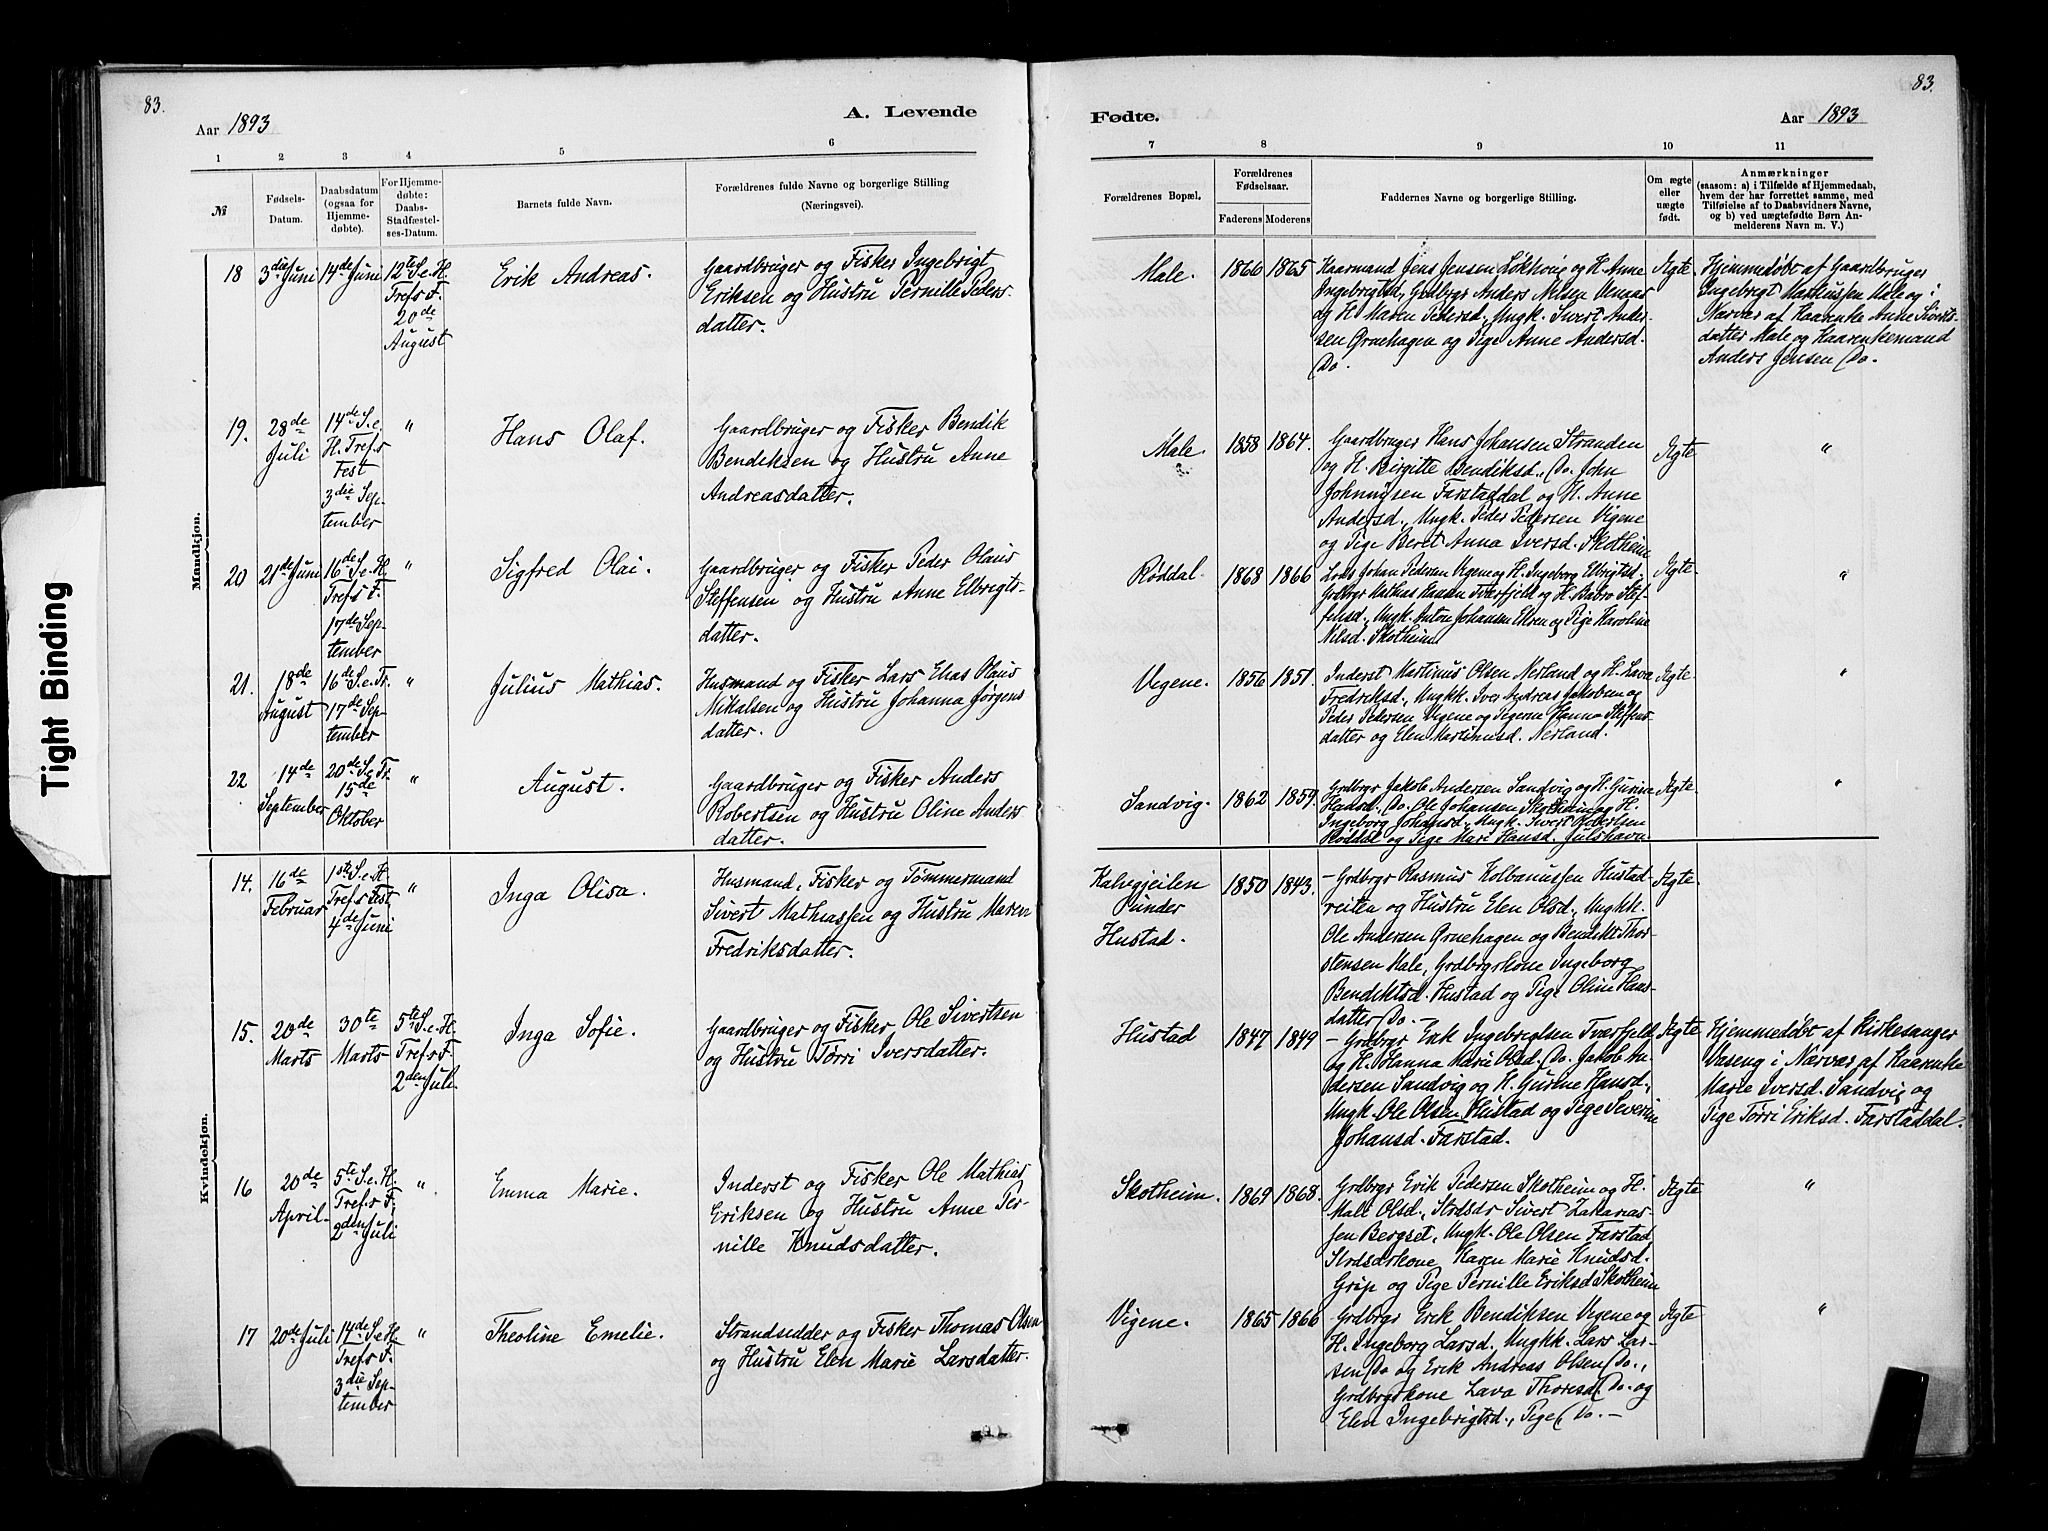 83.
83.
Aar 1893
A. Levende
Fødte.
Aar 1893
1 2 3 4 5 6
7 8 9 10 11
№
Fødsels-
Datum.
Daabsdatum
(ogsaa for
Hjemme-
døbte).
For Hjemme-
døbte:
Daabs-
Stadfæstel-
ses-Datum.
Barnets fulde Navn.
Forældrenes fulde Navne og borgerlige Stilling
(Næringsvei).
Forældrenes Bopæl.
Forældrenes
Fødselsaar.
Faderens
Moderens
Faddernes Navne og borgerlige Stilling.
Om ægte
eller
uægte
født.
Anmærkninger
(saasom: a) i Tilfælde af Hjemmedaab,
hvem der har forrettet samme, med
Tilføielse af to Daabsvidners Navne,
og b) ved uægtefødte Børn An-
melderens Navn m. V.)
Mandkjøn.
18
3die Juni
14de Juni
12te S. e. H.
Tref.s F.
20de
August
Erik Andreas.
Gaardbruger og Fisker Ingebrigt
Eriksen og Hustru Pernille Peders-
datter.
Male.
1866
1865
Kaarmand Jens Jensen Løkhvig og H. Anne
Ingebrigtsd., Grdbrgr Anders Nilsen
og H. Maren Pedersd., Ungk. Sivert Ander-
sen Gruehagen og Pige Anne Andersd.
Do.
Ægte
Hjemmedøbt af Gaardbruger
Ingebrigt Markussen Male og i
Nærvær af Kaarenke Anne Siverts-
datter Male og Kaarenkemand
Anders Jensen Do.
19.
28de
Juli
14de S. e.
H. Tref.s
Fest
3die Sep-
tember
"
Hans Olaf.
Gaardbruger og Fisker Bendik
Bendiksen og Hustru Anne
Andreasdatter.
Male.
1858
1864.
Gaardbruger Hans Johansen Stranden
og H. Birgitte Bendiksd., Do. John
Johnnysen Farstaddal og H. Anne
Andersd., Ungk. Peder Pedersen Vigene
og Pige Beret Anna Iversd. Skotheim
Ægte
"
20
21de Juni
16de S. e. H.
Tref.s F.
17de Sep-
tember
"
Sigfred Olai.
Gaardbruger og Fisker Peder Olaus
Steffensen og Hustru Anne Elbrigts-
datter.
Røddal.
1868
1866
Lods Johan Pedersen Vegene og H. Ingeborg Elbrigtsd.,
Grdbrgr Mathias Hansen Tverfjeld og H. Babro Stef-
fensd., Ungk. Anton Johansen Ekren og Pige Karoline
Nilsd. Skotheim
Ægte.
"
21.
18de
August
16de S. e. Tr.
17de Sep-
tember
"
Julius Mathias.
Husmand og Fisker Lars Elias Olaus
Nikalsen og Hustru Johanna Jørgens
datter.
Vegene.
1856
1851.
Inderst Martinus Olsen Nerland og H. Lava
Fredriksd., Ungkk. Iver Andreas Jakobsen og
Peder Pedersen Vegene og Pigerne Hanna Steffens-
datter og Elen Martinusd. Nerland.
Ægte.
"
22
14de
September
20de S. e. Tr.
15de
Oktober
"
August.
Gaardbruger og Fisker Anders
Robertsen og Hustru Oline Anders
datter.
Sandvig.
1862
1859.
Grdbrgr Jakob Andersen Sandvig og H. Gurine
Hansd., Do. Ole Johansen Skotheim og H.
Ingeborg Johansd., Ungk. Sivert Robertsen
Røddal og Pige Mari Hansd. Julshavn.
Ægte.
"
Kvindekjøn.
14.
16de
Februar
1ste S. e. H.
Tref.s Fest
4de Juni
"
Inga Olisa.
Husmand, Fisker og Tømmermand
Sivert Mathiassen og Hustru Maren
Fredriksdatter.
Kalvgjeilen
under
Hustad.
1850
1843.
– Grdbrgr Rasmus Kolbanussen Hustad-
reiten og Hustru Elen Olsd., Ungkk.
Ole Andersen Gruehagen og Bendikt Thor-
stensen Male, Grdbrgrkone Ingeborg
Bendiktsd. Hustad og Pige Oline Hans-
datter Do. –
Ægte.
15.
20de
Marts
30te
Marts
5te S. e. H.
Tref.s F.
2den Juli.
Inga Sofie.
Gaardbruger og Fisker Ole Sivertsen
og Hustru Tørri Iversdatter.
Hustad
1847
1849
– Grdbrgr Erik Ingebrigtsen Tværfjeld
og H. Hanna Marie Olsd., Do. Jakob An-
dersen Sandvig og H. Gurine Hansd.,
Ungk. Ole Olsen Hustad og Pige Severine
Johansd. Farstad.
Ægte
Hjemmedøbt af Kirkesanger
Vaseng i Nærvær af Kaarenke
Marie Iversd. Sandvig og
Pige Tørri Eriksd. Farstaddal.
16
20de
April.
5te S. e. H.
Tref.s F.
2den Juli
"
Emma Marie.
Inderst og Fisker Ole Mathias
Eriksen og Hustru Anne Per-
nille Knudsdatter.
Skotheim.
1869
1868.
Grdbrgr Erik Pedersen Skotheim og H.
Mali Olsd., Strdsdr Sivert Zakarias-
sen Bergset, Ungk. Ole Olsen Farstad
Strdsdrkone Karen Marie Knudsd.
Grip og Pige Pernille Eriksd Skotheim
Ægte
"
17
20de Juli
14de S. e. H.
Tref.s F.
3die Sep-
tember
"
Theoline Emelie.
Strandsidder og Fisker Thomas Olsen
og Hustru Elen Marie Larsdatter.
Vigene.
1865
1866
Grdbrgr Erik Bendiksen Vegene og
H. Ingeborg Larsd., Ungkk. Lars Lar-
sen Do og Erik Andreas Olsen Do.,
Grdbrgrkone Lava Thoresd. Do. og
Elen Ingebrigtsd., Pige Do. –
Ægte
"
Tight Binding